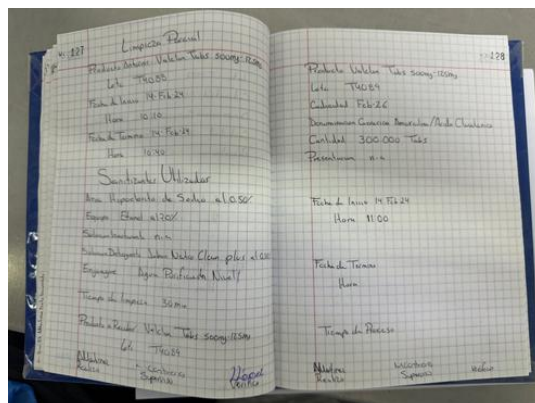 127
Limpieza Parcial
Producto Anterior Valclan Tabs 500mg-125mg
Lote T4083
Fecha de Inicio 14-Feb-24
Hora 10:10
Fecha de Termino 14-Feb-24
Hora 10:40
Sanitizantes Utilizados
Area Hipoclorito de Sodio al 0.50%
Equipo Etanol al 70%
n.a
Solucion Detergente Jabon Neutro Clean plus al
Enjuague Agua Purificada Nivel I
Tiempo de Limpieza 30 min
Producto a Realizar Valclan Tabs 500mg-125mg
Lote T4084
Realizo
Superviso
Verifico
128
Producto Valclan Tabs 500mg-125mg
Lote T4084
Caducidad Feb-26
Denominacion Generica Amoxicilina/Acido Clavulanico
Cantidad 300.000 Tabs
Presentacion n.a
Fecha de Inicio 14 Feb 24
Hora 11:00
Fecha de Termino
Hora
Tiempo de Proceso
Realizo
Superviso